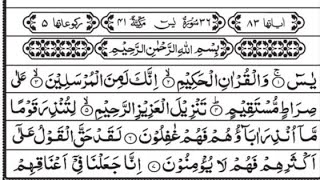 اٰیاتها ۸۳ ۳۶ سُوْرَةُ يٰسٓ مَكِّيَّةٌ ۴۱ رکوعاتها ۵
بِسْمِ اللّٰهِ الرَّحْمٰنِ الرَّحِيْمِ
يٰسٓ ۝۱ وَالْقُرْاٰنِ الْحَكِيْمِ ۝۲ اِنَّكَ لَمِنَ الْمُرْسَلِيْنَ ۝۳ عَلٰى
صِرَاطٍ مُّسْتَقِيْمٍ ۝۴ تَنْزِيْلَ الْعَزِيْزِ الرَّحِيْمِ ۝۵ لِتُنْذِرَ قَوْمًا
مَّاۤ اُنْذِرَ اٰبَآؤُهُمْ فَهُمْ غٰفِلُوْنَ ۝۶ لَقَدْ حَقَّ الْقَوْلُ عَلٰۤى
اَكْثَرِهِمْ فَهُمْ لَا يُؤْمِنُوْنَ ۝۷ اِنَّا جَعَلْنَا فِيْۤ اَعْنَاقِهِمْ